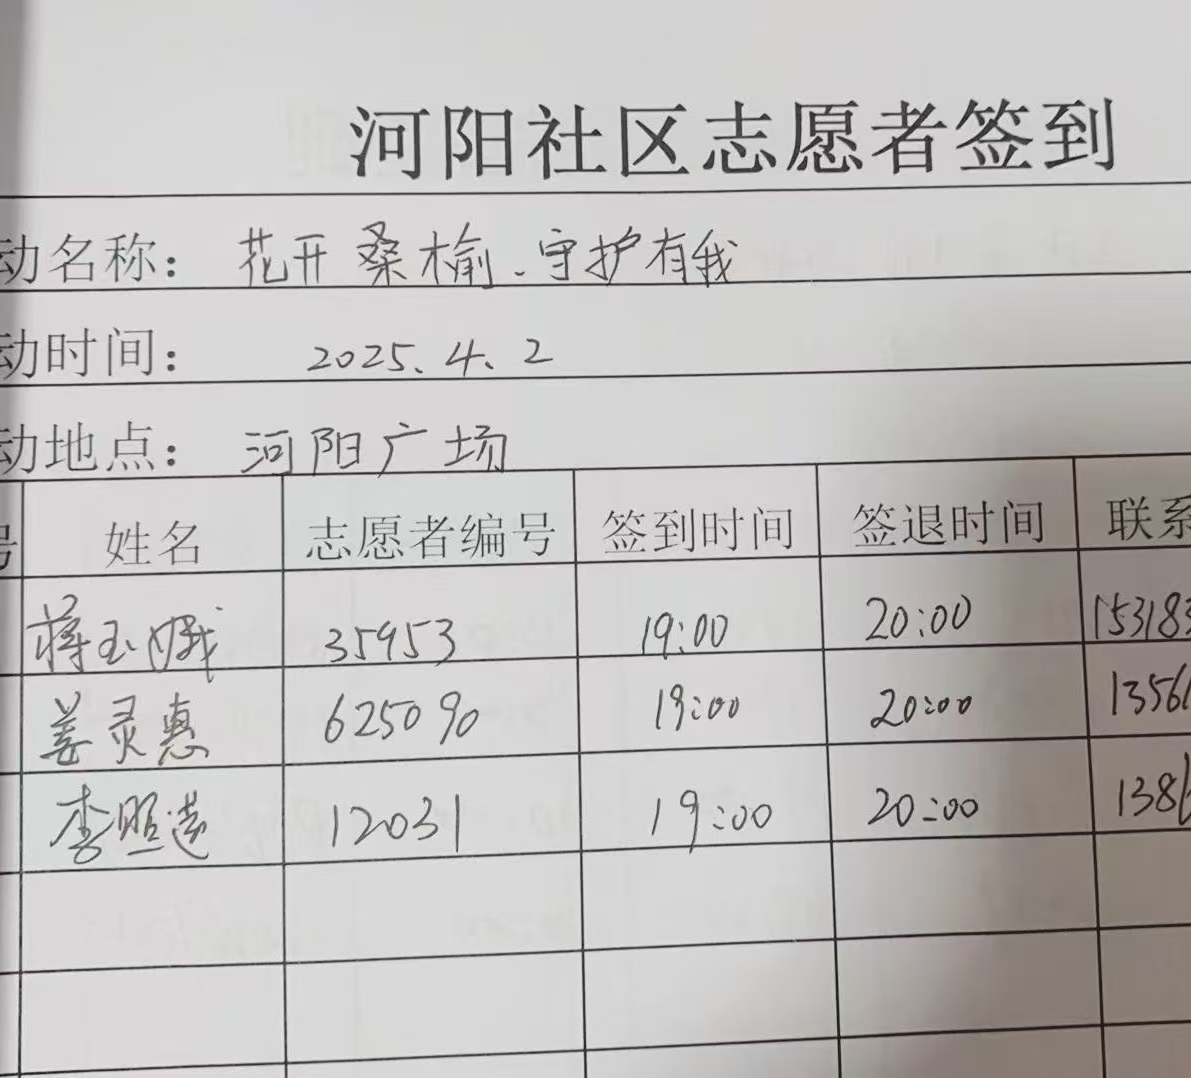 河阳社区志愿者签到
动名称：花开桑榆、守护有我
动时间：2025.4.2
动地点：河阳广场
号 姓名 志愿者编号 签到时间 签退时间 联系
蒋玉娥 35953 19:00 20:00 153183
姜灵惠 625090 19:00 20:00 1356
李照莲 12031 19:00 20:00 1386